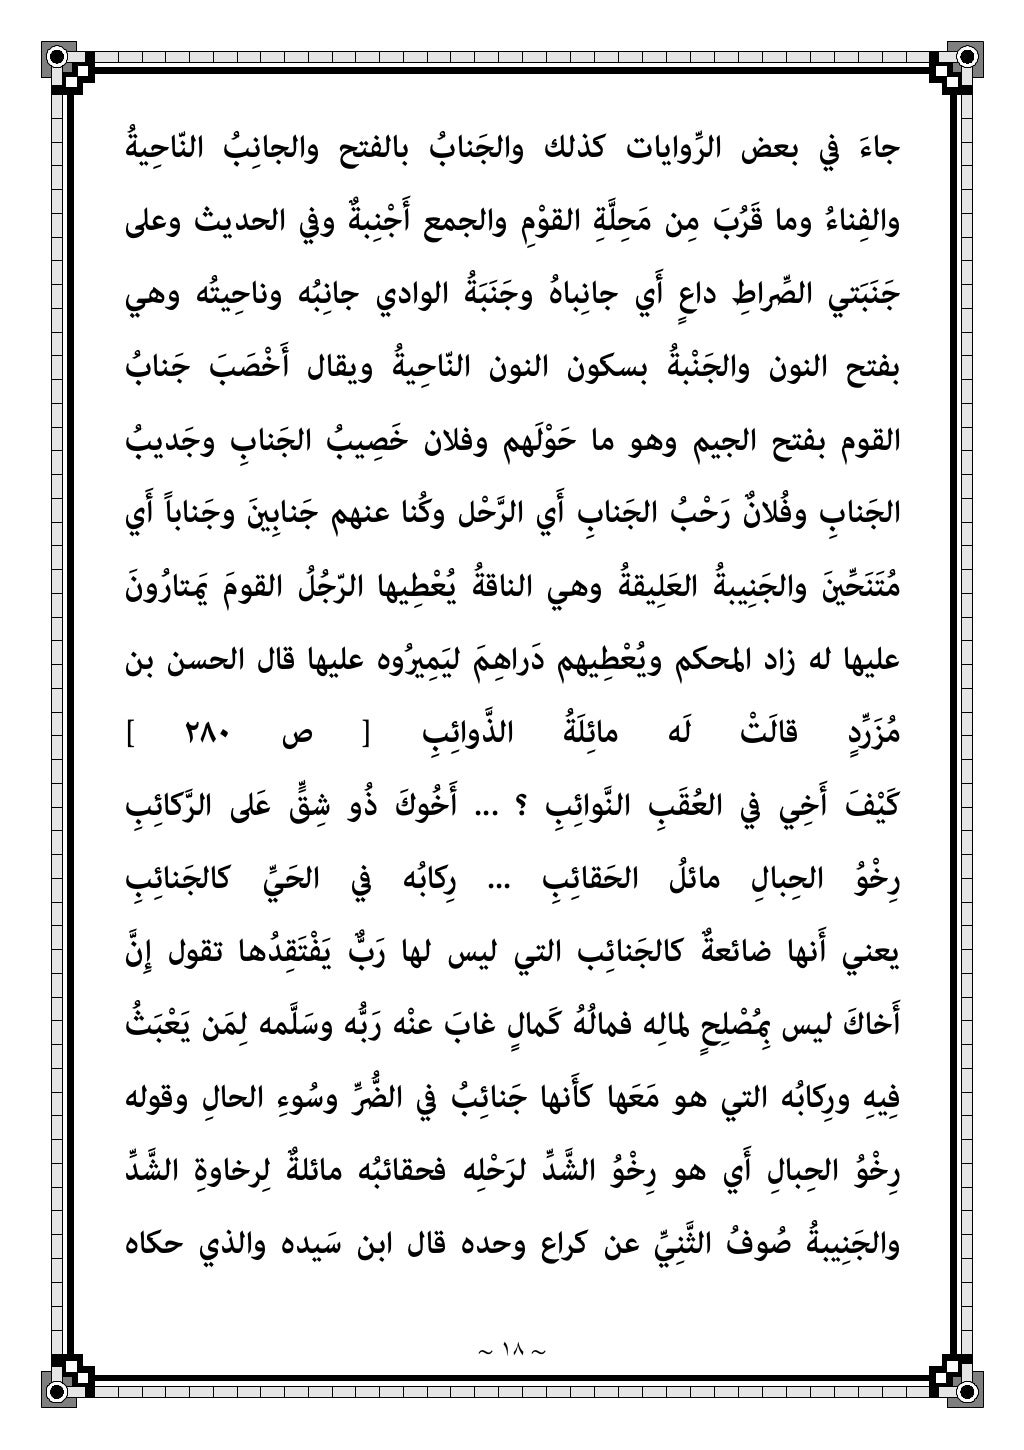 جاءَ في بعض الرِّوايات كذلك والجَنابُ بالفتح والجانِبُ النّاحِيةُ
والفِناءُ وما قَرُبَ مِن مَحِلَّةِ القوْمِ والجمع أَجْنِبةٌ وفي الحديث وعلى
جَنَبَتي الصِّراطِ داعٍ أَي جانِباهُ وجَنَبَةُ الوادي جانِبُه وناحِيتُه وهي
بفتح النون والجَنْبةُ بسكون النون النّاحِيةُ ويقال أَخْصَبَ جَنابُ
القوم بفتح الجيم وهو ما حَوْلَهم وفلان خَصِيبُ الجَنابِ وجَديبُ
الجَنابِ وفُلانٌ رَحْبُ الجَنابِ أَي الرَّحْل وكُنا عنهم جَنابِينَ وجَناباً أَي
مُتَنَحِّينَ والجَنِيبةُ العَلِيقةُ وهي الناقةُ يُعْطِيها الرّجُلُ القومَ يَمتارُونَ
عليها له زاد المحكم ويُعْطِيهم دَراهِمَ ليَمِيرُوه عليها قال الحسن بن
مُزَرِّدٍ قالَتْ لَه مائِلَةُ الذَّوائِبِ [ ص ٢٨٠ ]
كَيْفَ أَخِي في العُقَبِ النَّوائِبِ ؟ ... أَخُوكَ ذُو شِقٍّ عَلى الرَّكائِبِ
رِخْوُ الحِبالِ مائلُ الحَقائِبِ ... رِكابُه في الحَيِّ كالجَنائِبِ
يعني أَنها ضائعةٌ كالجَنائِب التي ليس لها رَبٌّ يَفْتَقِدُها تقول إِنَّ
أَخاكَ ليس بِمُصْلِحٍ لمالِه فمالُهُ كَمالٍ غابَ عنْه رَبُّه وسَلَّمه لِمَن يَعْبَثُ
فِيهِ ورِكابُه التي هو مَعَها كأَنها جَنائِبُ في الضُّرِّ وسُوءِ الحالِ وقوله
رِخْوُ الحِبالِ أَي هو رِخْوُ الشَّدِّ لرَحْلِه فحقائبُه مائلةٌ لِرخاوةِ الشَّدِّ
والجَنِيبةُ صُوفُ الثَّنِيِّ عن كراع وحده قال ابن سَيده والذي حكاه
~ ١٨ ~